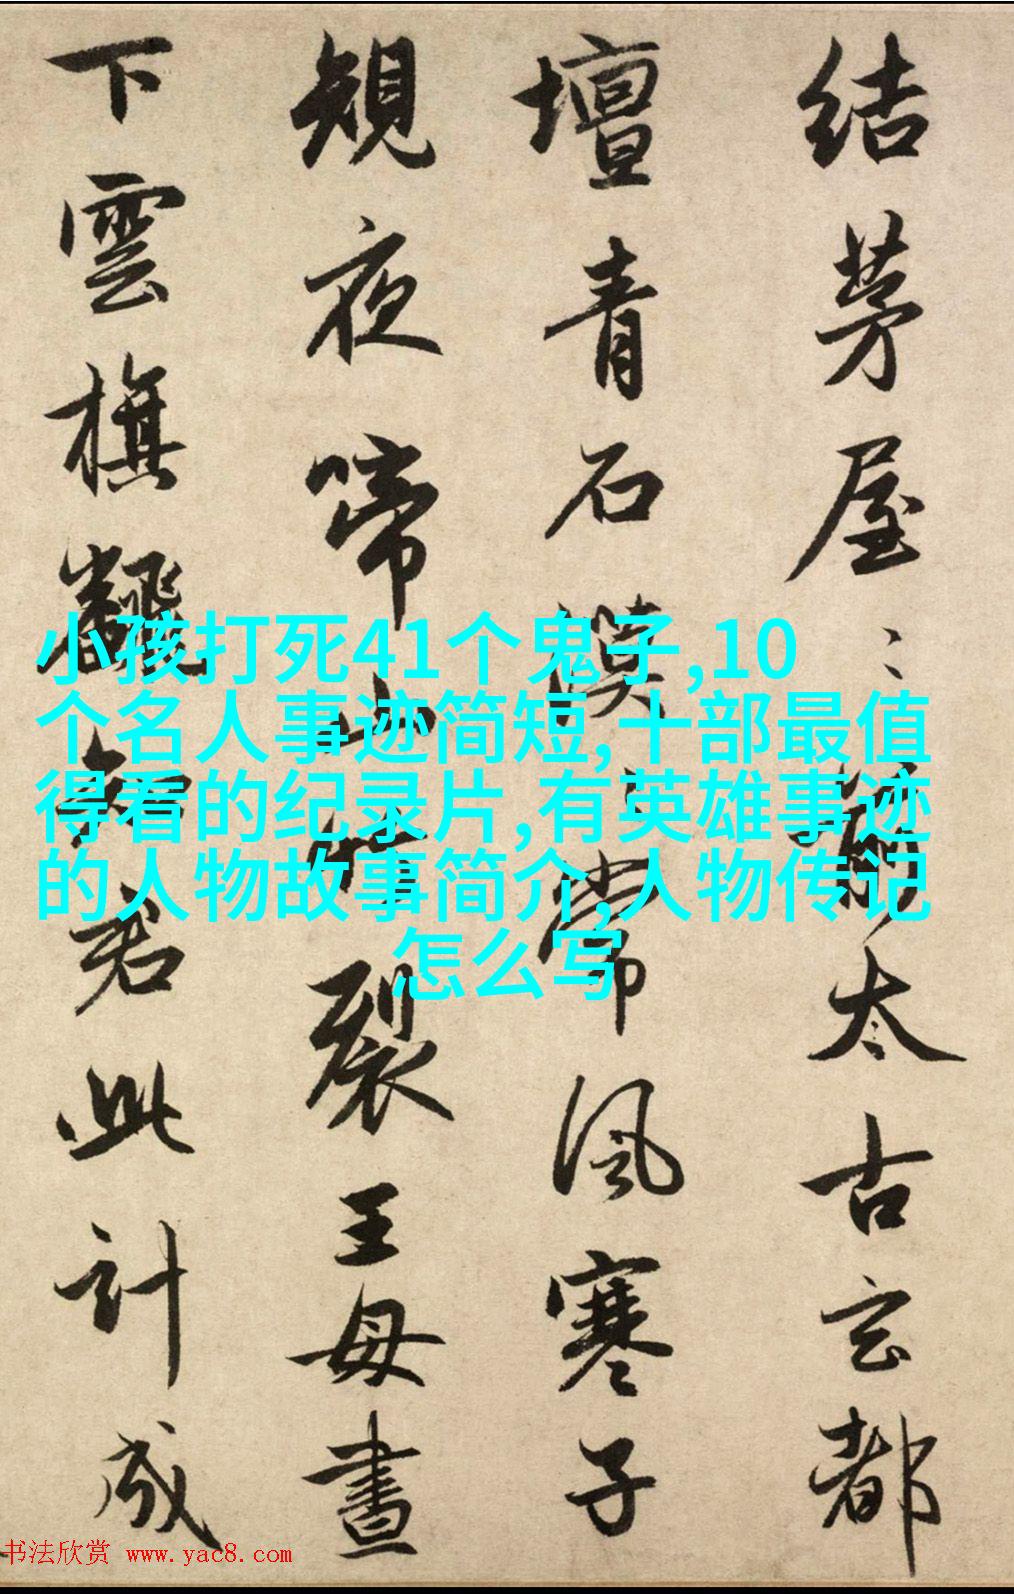 結茅屋〻前太古玄都
壇青石漠〻常風寒子
規夜啼山竹裂王母晝
下雲旗翻知君此計成
小孩打死41个鬼子,10
个名人事迹简短,十部最值
得看的纪录片,有英雄事迹
的人物故事简介,人物传记
怎么写
书法欣赏 www.yac8.com